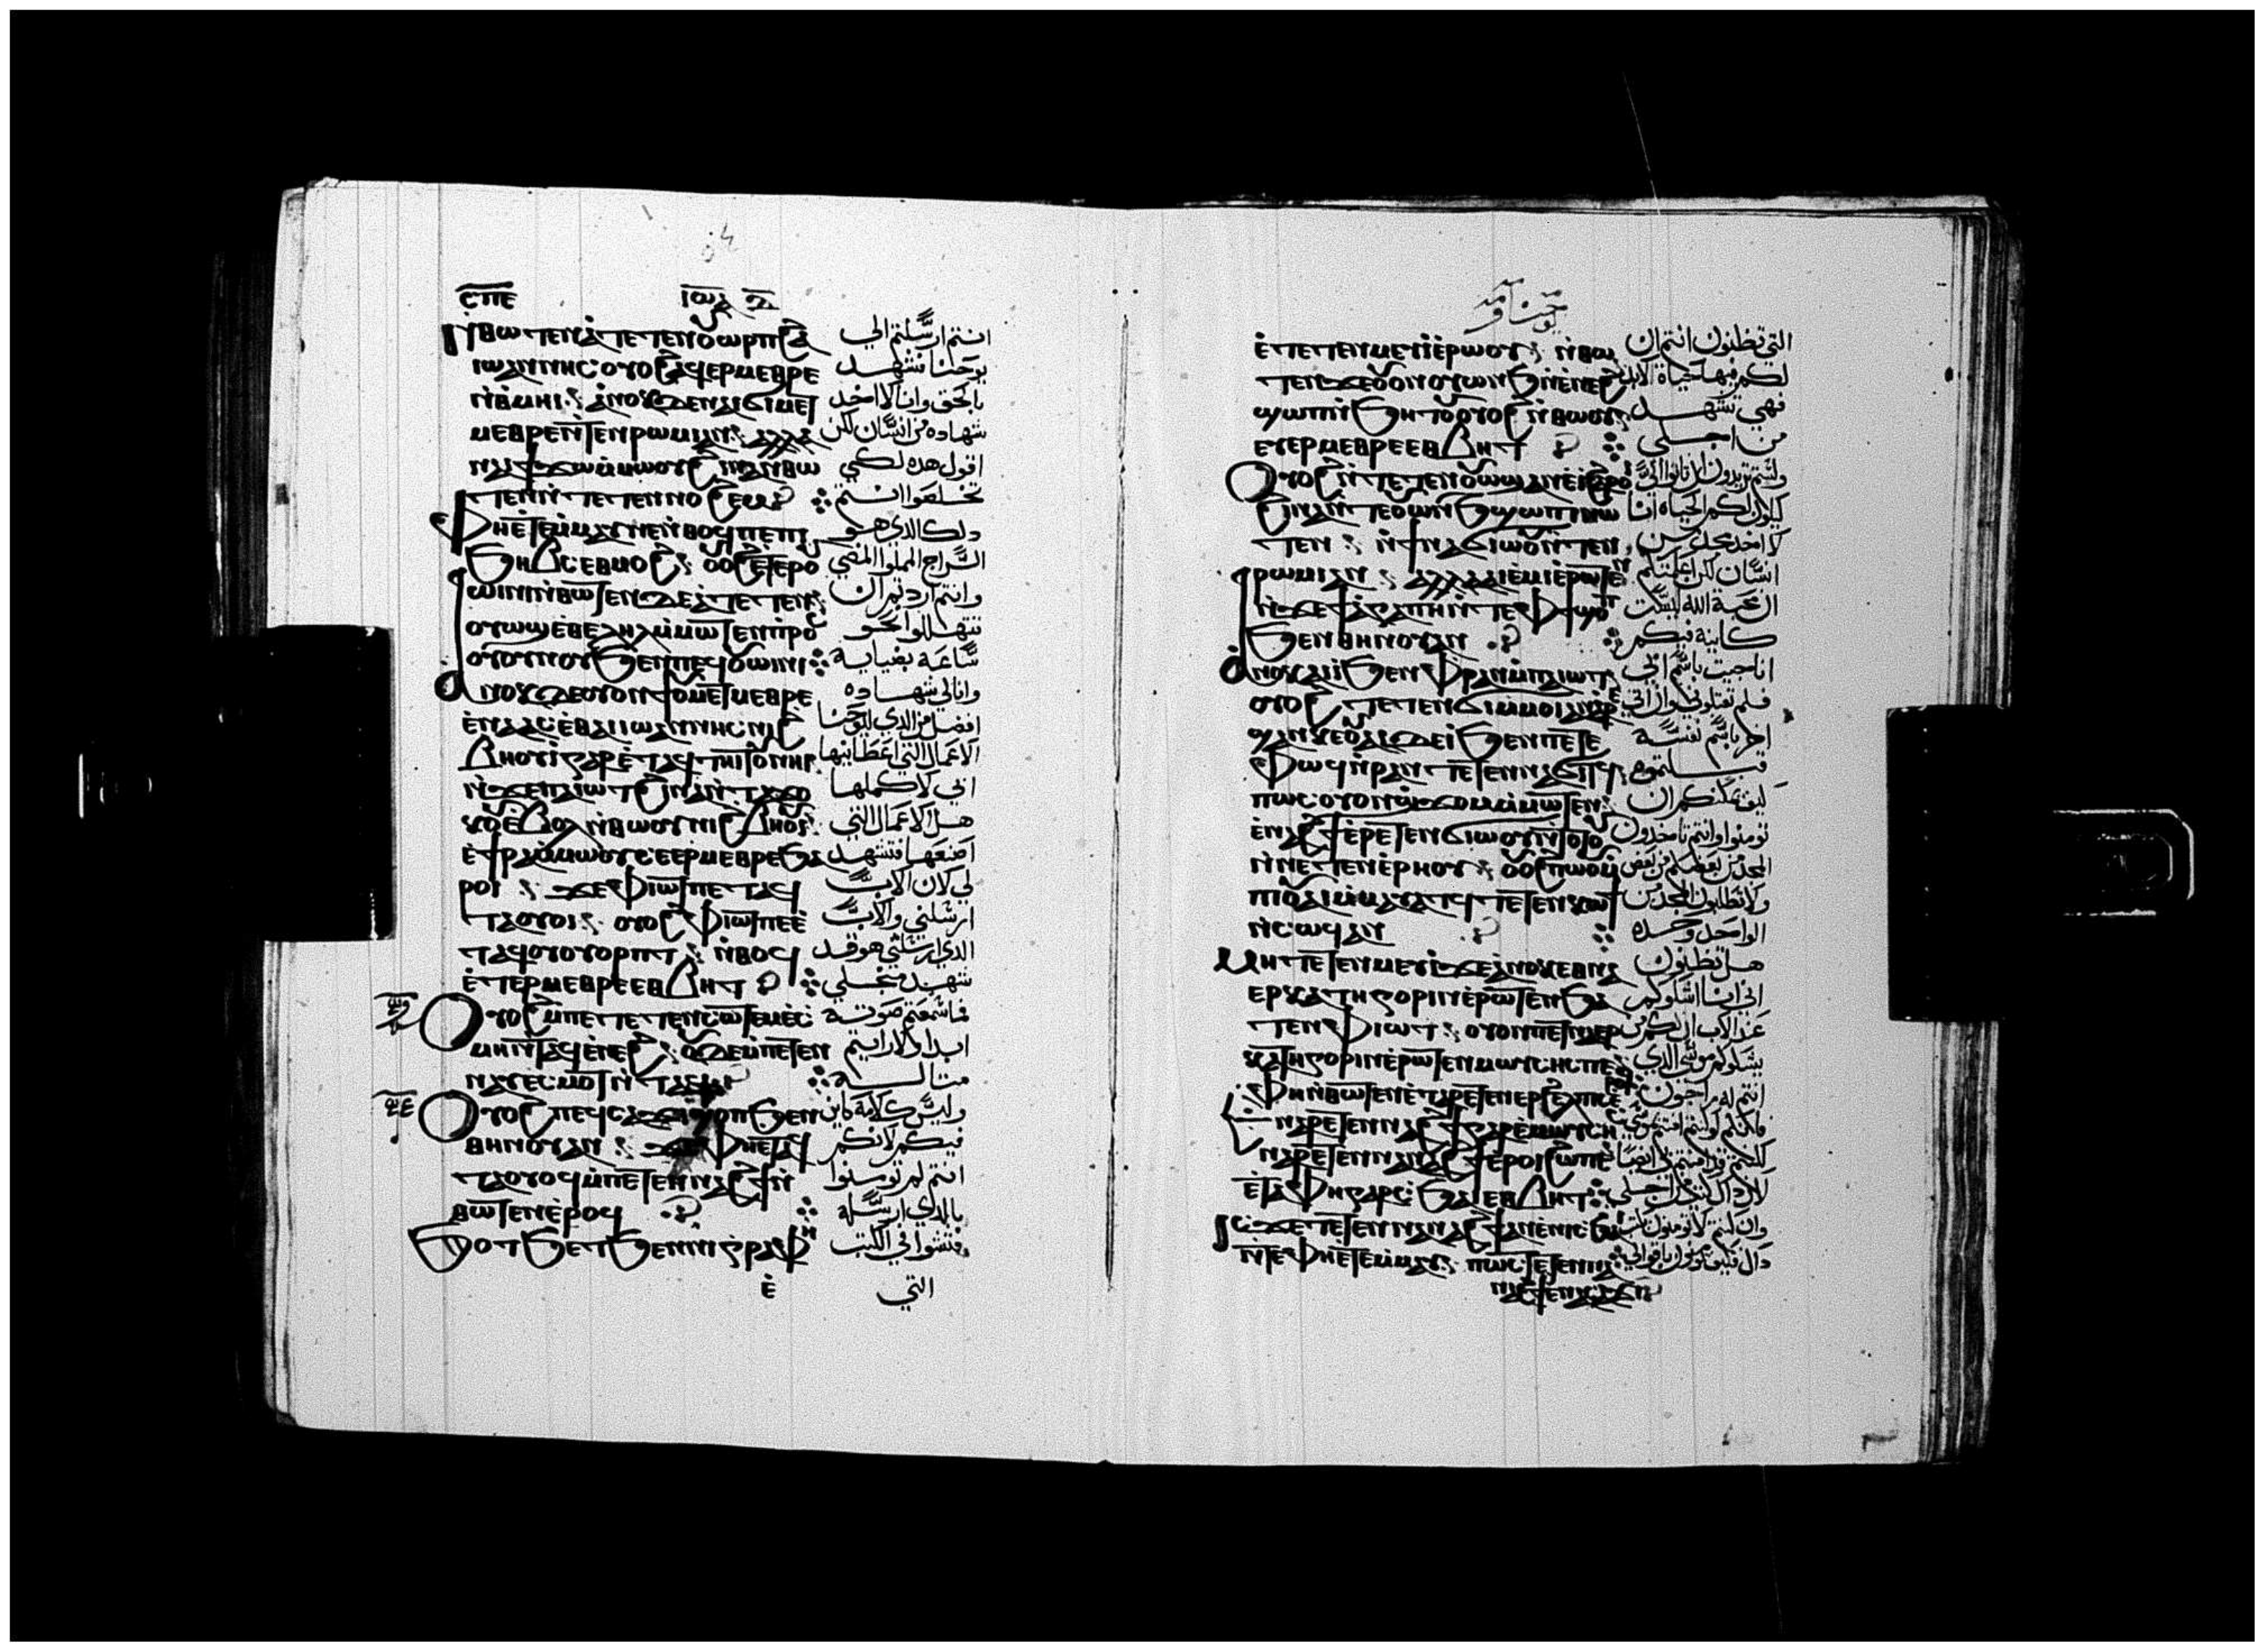 ⲤⲠⲈ
ⲒⲰⲀ
Ⲛ̀ⲐⲰⲦⲈⲚ ⲀⲦⲈⲦⲈⲚⲞⲨⲰⲢⲠ ϨⲀ
ⲒⲰⲀⲚⲚⲎⲤ ⲞⲨⲞϨ ⲀϤⲈⲢⲘⲈⲐⲢⲈ
Ⲛ̀ⲐⲘⲎⲒ ⲀⲚⲞⲔ ⲆⲈ ⲚⲀⲒϬⲒⲘⲈⲦ
ⲘⲈⲐⲢⲈ Ⲛ̀ⲦⲈⲚ ⲢⲰⲘⲒ ⲀⲚ ⲀⲖⲖⲀ
ⲚⲀⲒ ϮϪⲰ Ⲙ̀ⲘⲰⲞⲨ ϨⲒⲚⲀ Ⲛ̀ⲐⲰ
ⲦⲈⲚ Ⲛ̀ⲦⲈⲦⲈⲚⲚⲞϨⲈⲘ
ⲪⲎ ⲈⲦⲈⲘ̀ⲘⲀⲨ ⲚⲈ Ⲛ̀ⲐⲞϤ ⲠⲈ ⲠⲒ
ϦⲎⲂⲤ ⲈⲐⲘⲞϨ ⲞⲨⲞϨ ⲈⲦⲈⲢⲞⲨ
ⲰⲒⲚⲒ Ⲛ̀ⲐⲰⲦⲈⲚ ⲆⲈ ⲀⲦⲈⲦⲈⲚ
ⲞⲨⲰϢ ⲈⲐⲈⲖⲎⲖ Ⲙ̀ⲘⲰⲦⲈⲚ Ⲙ̀ⲠⲢⲞⲤ
ⲞⲨⲞⲨⲚⲞⲨ ϦⲈⲚ ⲠⲈϤⲞⲨⲰⲒⲚⲒ
ⲀⲚⲞⲔ ⲆⲈ ⲞⲨⲞⲚϮ ⲞⲨⲘⲈⲦⲘⲈⲐⲢⲈ
ⲈⲚⲀⲀⲤ ⲈⲐⲀ ⲒⲰⲀⲚⲚⲎⲤ ⲚⲒϨ
ⲂⲎⲞⲨⲒ ⲄⲀⲢ ⲈⲦⲀϤⲦⲎⲒⲦⲞⲨ ⲚⲎⲒ
Ⲛ̀ϪⲈ ⲠⲀⲒⲰⲦ ϨⲒⲚⲀ Ⲛ̀ⲦⲀϪⲞ
ⲔⲞⲨ ⲈⲂⲞⲖ Ⲛ̀ⲐⲰⲞⲨ ⲚⲒϨⲂⲎⲞⲨⲒ
ⲈϮⲢⲀ Ⲙ̀ⲘⲰⲞⲨ ⲤⲈⲈⲢⲘⲈⲐⲢⲈ ϦⲀ
ⲢⲞⲒ ϪⲈ ⲪⲒⲰⲦ ⲠⲈⲦⲀϤ
ⲦⲀⲞⲨⲞⲒ ⲞⲨⲞϨ ⲪⲒⲰⲦ ⲠⲈ Ⲉ
ⲦⲀϤⲞⲨⲞⲨⲞⲢⲠⲦ Ⲛ̀ⲐⲞϤ
ⲈⲦⲈⲢⲘⲈⲐⲢⲈ ⲈⲐⲂⲎⲦ
ⲞⲨⲞϨ Ⲙ̀ⲠⲈⲦⲈⲦⲈⲚⲤⲰⲦⲈⲘ ⲈⲤ
ⲘⲎ Ⲛ̀ⲦⲀϤ ⲈⲚⲈϨ ⲞⲨⲆⲈ Ⲙ̀ⲠⲈⲦⲈⲚ
ⲚⲀⲨ ⲈⲤⲘⲞⲦ Ⲛ̀ⲦⲀϤ
ⲞⲨⲞϨ ⲠⲈϤⲤⲀϪⲒ ϢⲞⲠ ϦⲈⲚ
ⲐⲎⲚⲞⲨ ⲀⲚ ϪⲈ ⲪⲎ ⲈⲦⲀϤ
ⲦⲀⲞⲨⲞϤ Ⲙ̀ⲠⲈⲦⲈⲚⲚⲀϨϮ Ⲛ̀
ⲐⲰⲦⲈⲚ ⲈⲢⲞϤ
ϦⲞⲦϦⲈⲦ ϦⲈⲚ ⲚⲒⲄⲢⲀⲪⲎ
Ⲉ̀
انتم ارسلتم الي
يوحنا فشهد
بالحق وانا لا اخد
شهاده من انسان لكن
اقول هده لكي
تخلصوا انتم
دلك الدي هو
السراج المملوا المضي
وانتم اردتم ان
تتهللوا نحو
ساعة بضيايه
وانا لي شهاده
افضل من الدي ليوحنا
الاعمال التي اعطانيها
ابي لاكملها
هدا الاعمال التي
اصنعها فتشهد
لي لان الاب
ارسلني والاب
الدي ارسلني هو قد
شهد من اجلي
فما سمعتم صوته
ابدا ولا رايتم
مثاله
وليس كلامه كاين
فيكم لانكم
انتم لم تومنوا
بالدي ارسله
فتشوا في الكتب
التي
يوحنا
ⲈⲦⲈⲦⲈⲚⲘⲈⲨⲒ ⲈⲢⲰⲞⲨ Ⲛ̀ⲐⲰ
ⲦⲈⲚ ϪⲈ ⲞⲨⲞⲚ ⲞⲨⲰⲚϦ Ⲛ̀ⲈⲚⲈϨ
ϢⲞⲠ Ⲛ̀ϦⲎⲦⲞⲨ ⲞⲨⲞϨ Ⲛ̀ⲐⲰⲞⲨ
ⲈⲨⲈⲢⲘⲈⲐⲢⲈ ⲈⲐⲂⲎⲦ
ⲞⲨⲞϨ Ⲛ̀ⲦⲈⲦⲈⲚⲞⲨⲰϢ ⲀⲚ ⲈⲒ ϨⲀⲢⲞⲒ
ϨⲒⲚⲀ Ⲛ̀ⲦⲈ ⲞⲨⲰⲚϦ ϢⲰⲠⲒ ⲚⲰ
ⲦⲈⲚ Ⲛ̀ϮⲚⲀϬⲒⲰⲞⲨ Ⲛ̀ⲦⲈⲚ
ⲢⲰⲘⲒ ⲀⲚ ⲀⲖⲖⲀ ⲀⲒⲈⲘⲒ ⲈⲢⲰⲦⲈⲚ
Ⲛ̀ϪⲈ ϮⲀⲄⲀⲠⲎ Ⲛ̀ⲦⲈ ⲪϮ ϢⲞⲠ
ϦⲈⲚ ⲐⲎⲚⲞⲨ ⲀⲚ
ⲀⲚⲞⲔ ⲀⲒⲒ ϦⲈⲚ ⲪⲢⲀⲚ Ⲙ̀ⲠⲀⲒⲰⲦ
ⲞⲨⲞϨ ⲦⲈⲦⲈⲚϬⲒ Ⲙ̀ⲘⲞⲒ ⲀⲚ
ϢⲀⲚ ⲔⲈⲞⲨⲀⲒ ⲆⲈ Ⲓ ϦⲈⲚ ⲠⲈⲦⲈ
ⲪⲰϤ Ⲛ̀ⲢⲀⲚ ⲦⲈⲦⲈⲚⲚⲀϬⲒⲦϤ
ⲠⲰⲤ ⲞⲨⲞⲚ ϢϪⲞⲘ Ⲙ̀ⲘⲰⲦⲈⲚ
ⲈⲚⲀϨϮ ⲈⲢⲈⲦⲈⲚϬⲒⲰⲞⲨ Ⲛ̀ⲦⲞⲦⲞⲨ
Ⲛ̀ⲚⲈⲦⲈⲚⲈⲢⲎⲞⲨ ⲞⲨⲞϨ ⲠⲰⲞⲨ Ⲛ̀ⲦⲈ
ⲠⲒⲞⲨⲀⲒ Ⲙ̀ⲘⲀⲨⲀⲦϤ ⲦⲈⲦⲈⲚⲔⲰϮ
Ⲛ̀ⲤⲰϤ ⲀⲚ
ⲘⲎ ⲦⲈⲦⲈⲚⲘⲈⲨⲒ ϪⲈ ⲀⲚⲞⲔ ⲈⲐⲚⲀ
ⲈⲢⲔⲀⲦⲎⲄⲞⲢⲒⲚ ⲈⲢⲰⲦⲈⲚ ϦⲀ
ⲦⲈⲚ ⲪⲒⲰⲦ ⲞⲨⲞⲚ ⲠⲈⲦⲚⲀⲈⲢ
ⲔⲀⲦⲎⲄⲞⲢⲒⲚ ⲈⲢⲰⲦⲈⲚ ⲘⲰⲨⲤⲎⲤ ⲠⲈ
ⲪⲎ Ⲛ̀ⲐⲰⲦⲈⲚ ⲈⲦⲀⲢⲈⲦⲈⲚⲈⲢϨⲈⲖⲠⲒⲤ
ⲈⲚⲀⲢⲈⲦⲈⲚⲚⲀϨϮ ⲄⲀⲢ ⲈⲘⲰⲨⲤⲎ
ⲚⲀⲢⲈⲦⲈⲚⲚⲀⲚⲀϨϮ ⲈⲢⲞⲒ ϨⲰ ⲠⲈ
ⲈⲦⲀ ⲪⲎ ⲄⲀⲢ ⲤϦⲀⲒ ⲈⲐⲂⲎⲦ
ⲒⲤϪⲈ ⲦⲈⲦⲈⲚⲚⲀⲚⲀϨϮ ⲀⲚ ⲈⲚⲒⲤϦⲀⲒ
Ⲛ̀ⲦⲈ ⲪⲎ ⲈⲦⲈⲘ̀ⲘⲀⲨ ⲠⲰⲤ ⲦⲈⲦⲈⲚⲚⲀ
ⲚⲀϨϮ ⲈⲚⲀⲤⲀϪⲒ
التي تظنون انتم ان
لكم فيها حياة الابد
فهي تشهد
من اجلي
ولستم تريدون ان تاتوا الي
ليكون لكم الحياه انا
لا اخد مجدا من
انسان لكن اعلمتكم
ان محبة الله ليست
كاينة فيكم
انا جيت باسم ابي
فلم تقبلوني وان اتي
اخر باسم نفسه
قبلتموه
كيف يمكنكم ان
تومنوا وانتم تاخدون
المجد من بعضكم من بعض
ولا تطلبون المجد من
الواحد وحده
هل تظنون
اني انا اشكوكم
عند الاب ان لكم من
يشكوكم موسي الدي
انتم له راجون